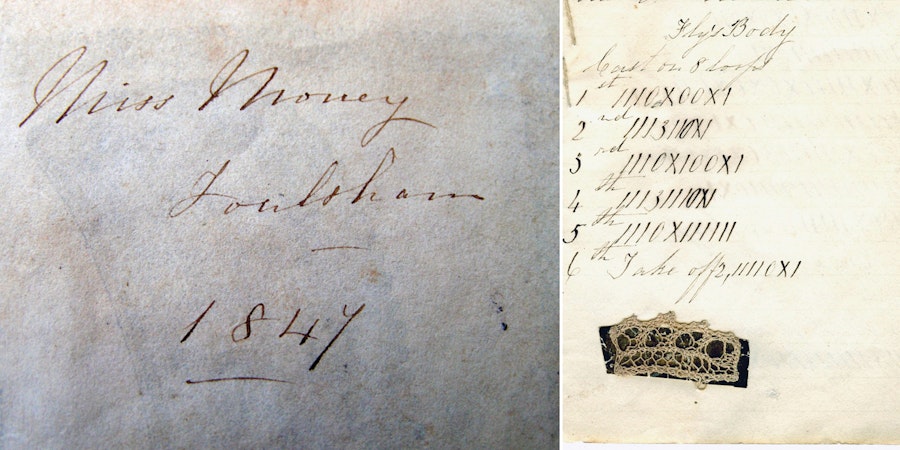 Miss Money
Foulsham
1847
Fly's Body
Cast on 8 loops
1st 1110X00X1
2nd 1113110X1
3rd 1110X100X1
4th 11131110X1
5th 1110X111111
6th Take off 2, 1110X1